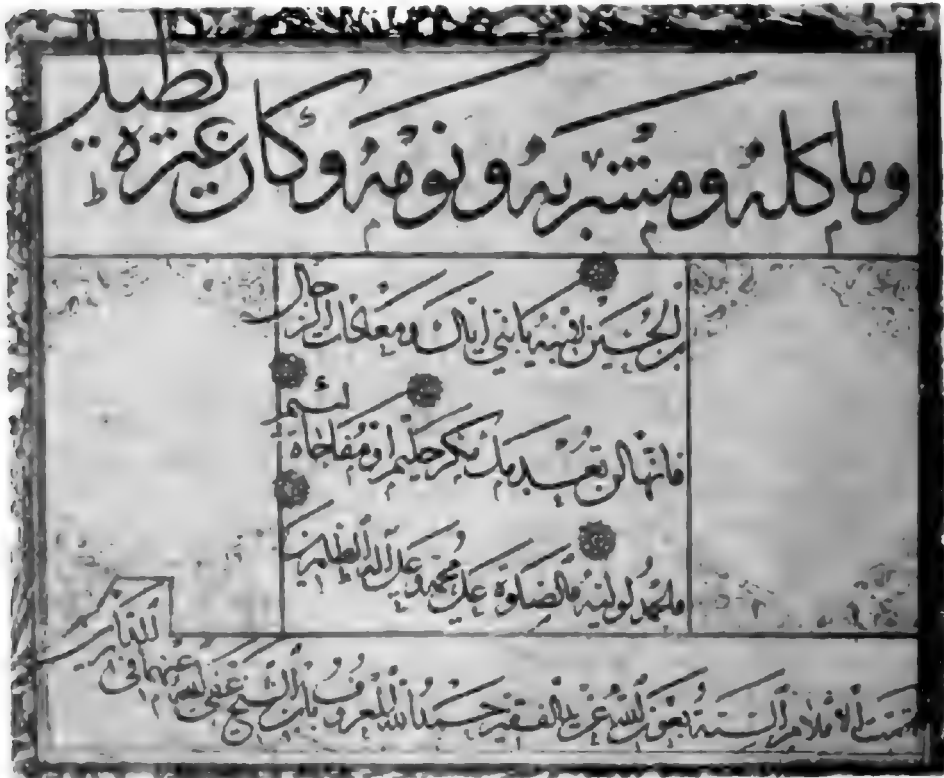 وماكله ومشربه ونومه وكان غيره نطيل
بن الحسين لابنه يا بني اياك ومعادات الرجال
فانها لن تعدمك مكر حليم او مفاجاة لئيم
والحمد لوليه والصلوة على محمد وعلى آله الطاهرين
تمت الاقلام الستة بعون الله عز يد الفقير حمد الله المعروف بابن الشيخ عفى الله عنهما في